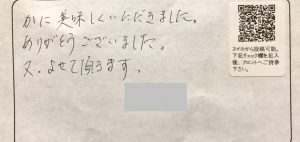 かに美味しくいただきました。
ありがとうございました。
又、よせて頂きます。
スマホから投稿可能。
下記チェック欄を記入
後、フロントへご持参
下さい。